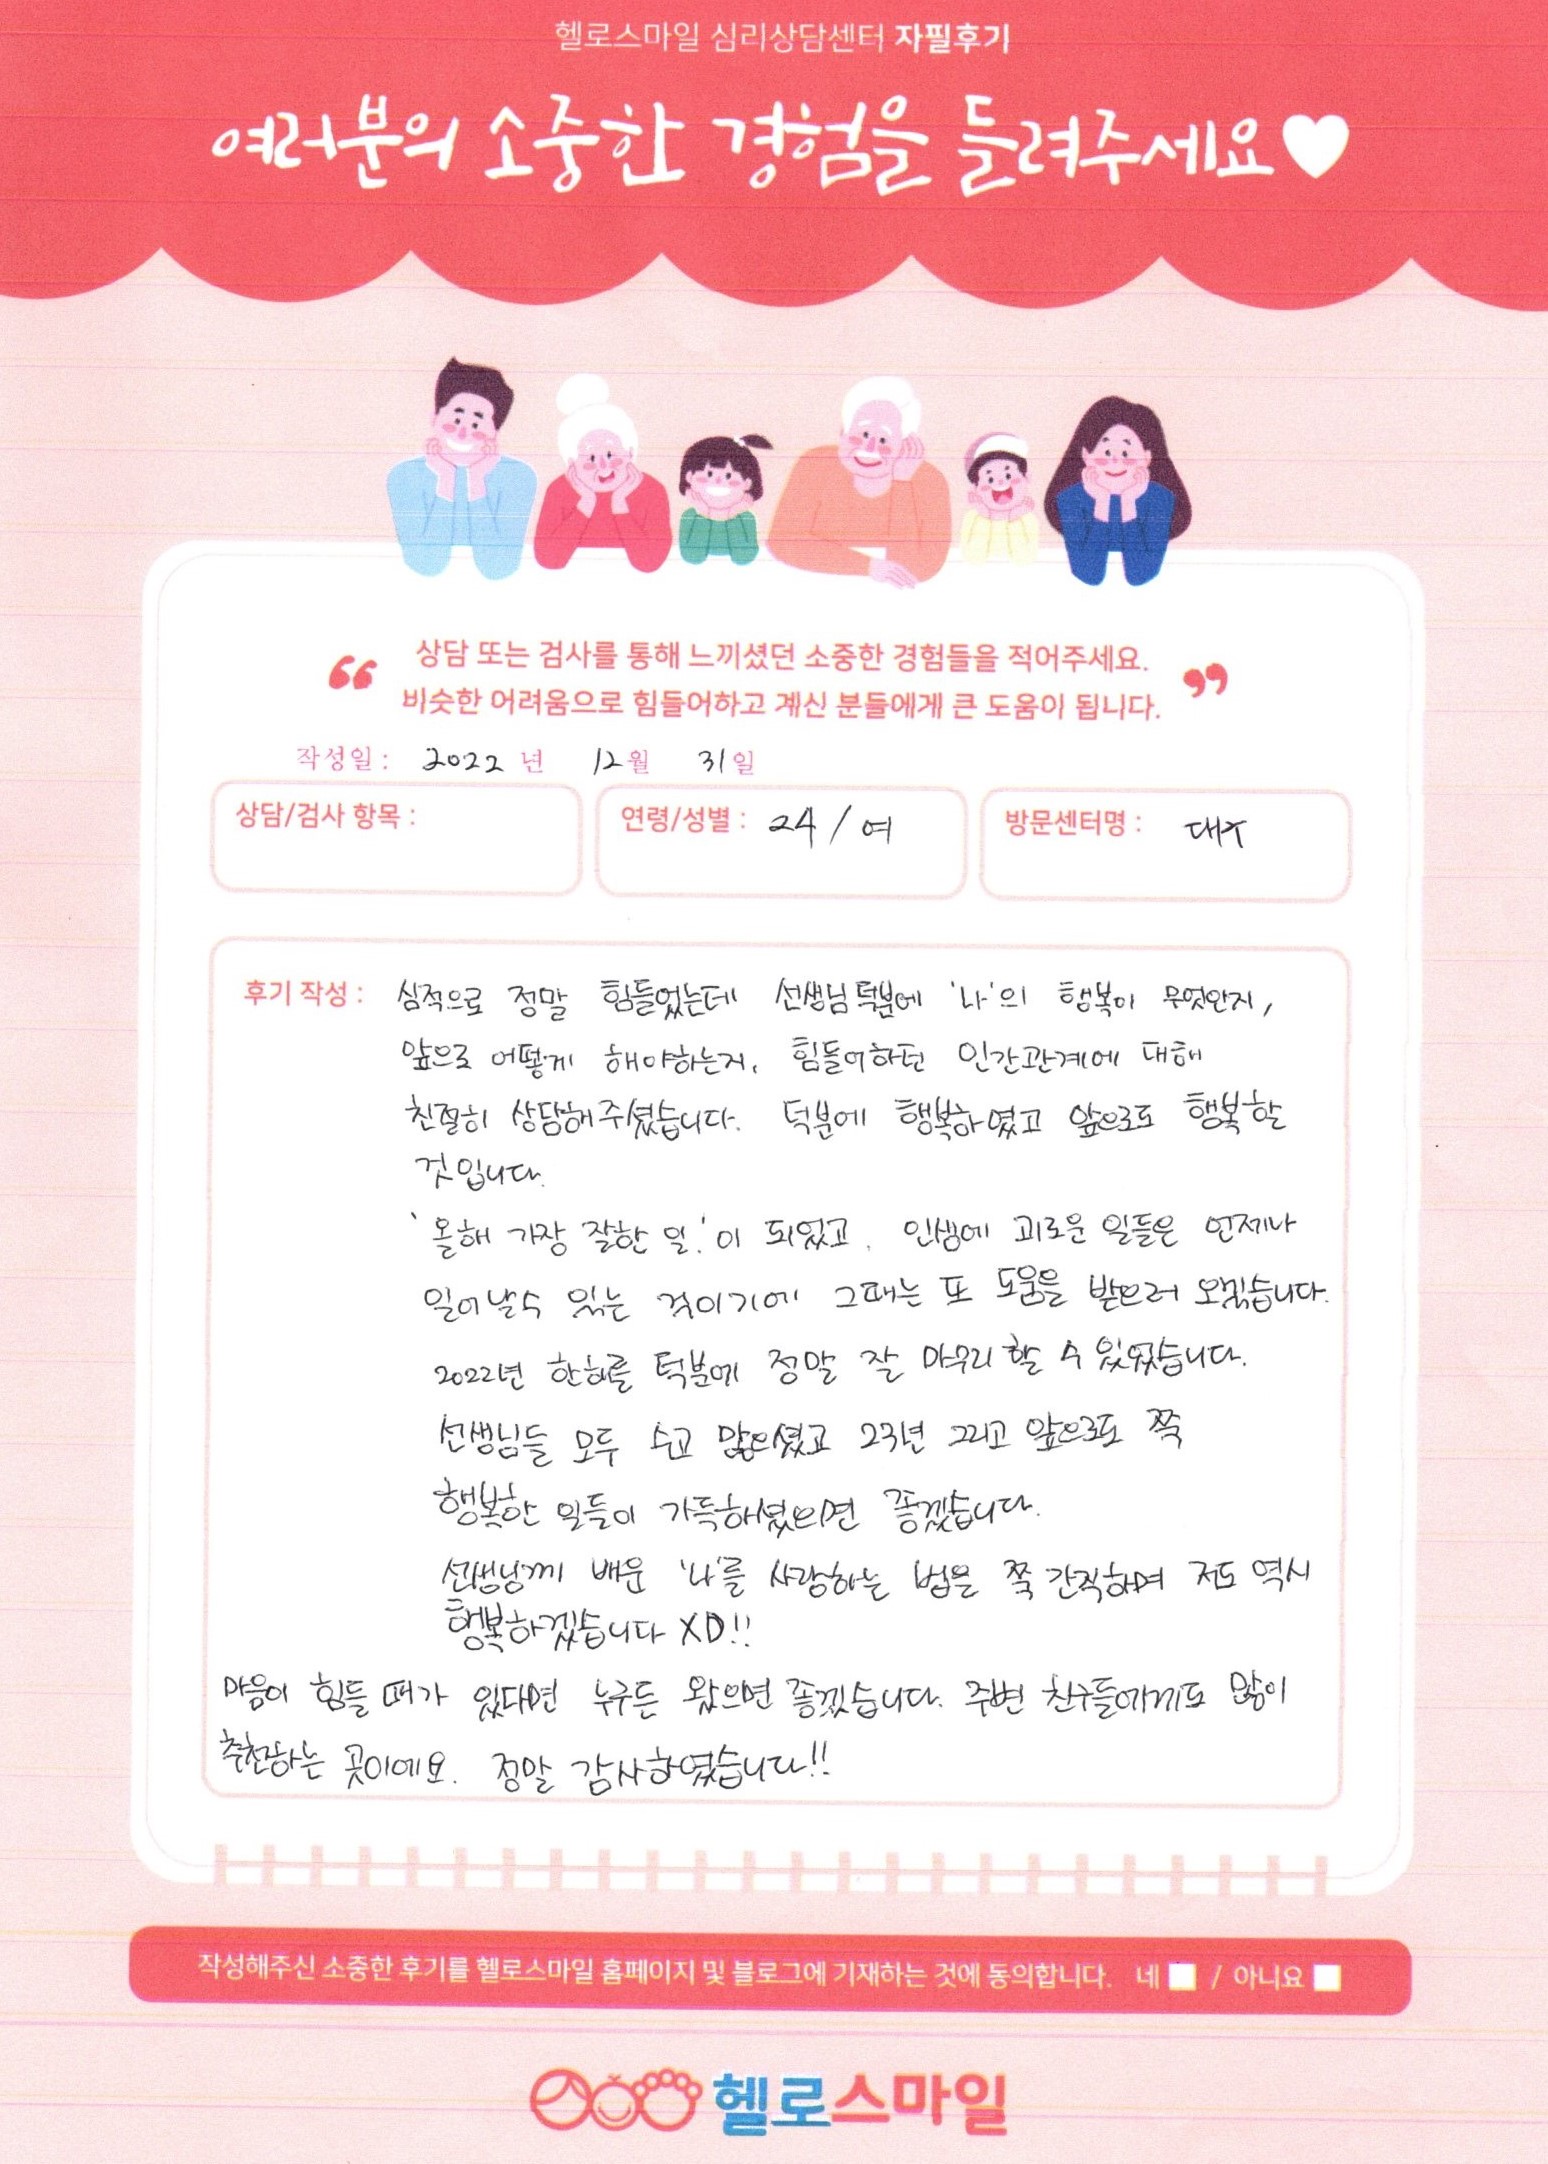 헬로스마일 심리상담센터 자필후기
여러분의 소중한 경험을 들려주세요♥
“ 상담 또는 검사를 통해 느끼셨던 소중한 경험들을 적어주세요. ”
비슷한 어려움으로 힘들어하고 계신 분들에게 큰 도움이 됩니다.
작성일 : 2022 년 12월 31일
상담/검사 항목 :
연령/성별 : 24 / 여
방문센터명 :
후기 작성 : 심적으로 정말 힘들었는데 선생님 덕분에 '나'의 행복이 무엇인지,
앞으로 어떻게 해야하는지, 힘들어하던 인간관계에 대해
친절히 상담해주셨습니다. 덕분에 행복하였고 앞으로도 행복할
것입니다.
'올해 가장 잘한 일.'이 되었고, 인생에 괴로운 일들은 언제나
일어날수 있는 것이기에 그때는 또 도움을 받으러 오겠습니다.
2022년 한해를 덕분에 정말 잘 마무리 할 수 있었습니다.
선생님들 모두 수고 많으셨고 23년 그리고 앞으로도 쭉
행복한 일들이 가득하셨으면 좋겠습니다.
선생님께 배운 '나'를 사랑하는 법을 쭉 간직하며 저도 역시
행복하겠습니다 XD!!
마음이 힘들 때가 있다면 누구든 왔으면 좋겠습니다. 주변 친구들에게도 많이
추천하는 곳이에요. 정말 감사하였습니다!!
작성해주신 소중한 후기를 헬로스마일 홈페이지 및 블로그에 기재하는 것에 동의합니다. 네 / 아니요
헬로스마일